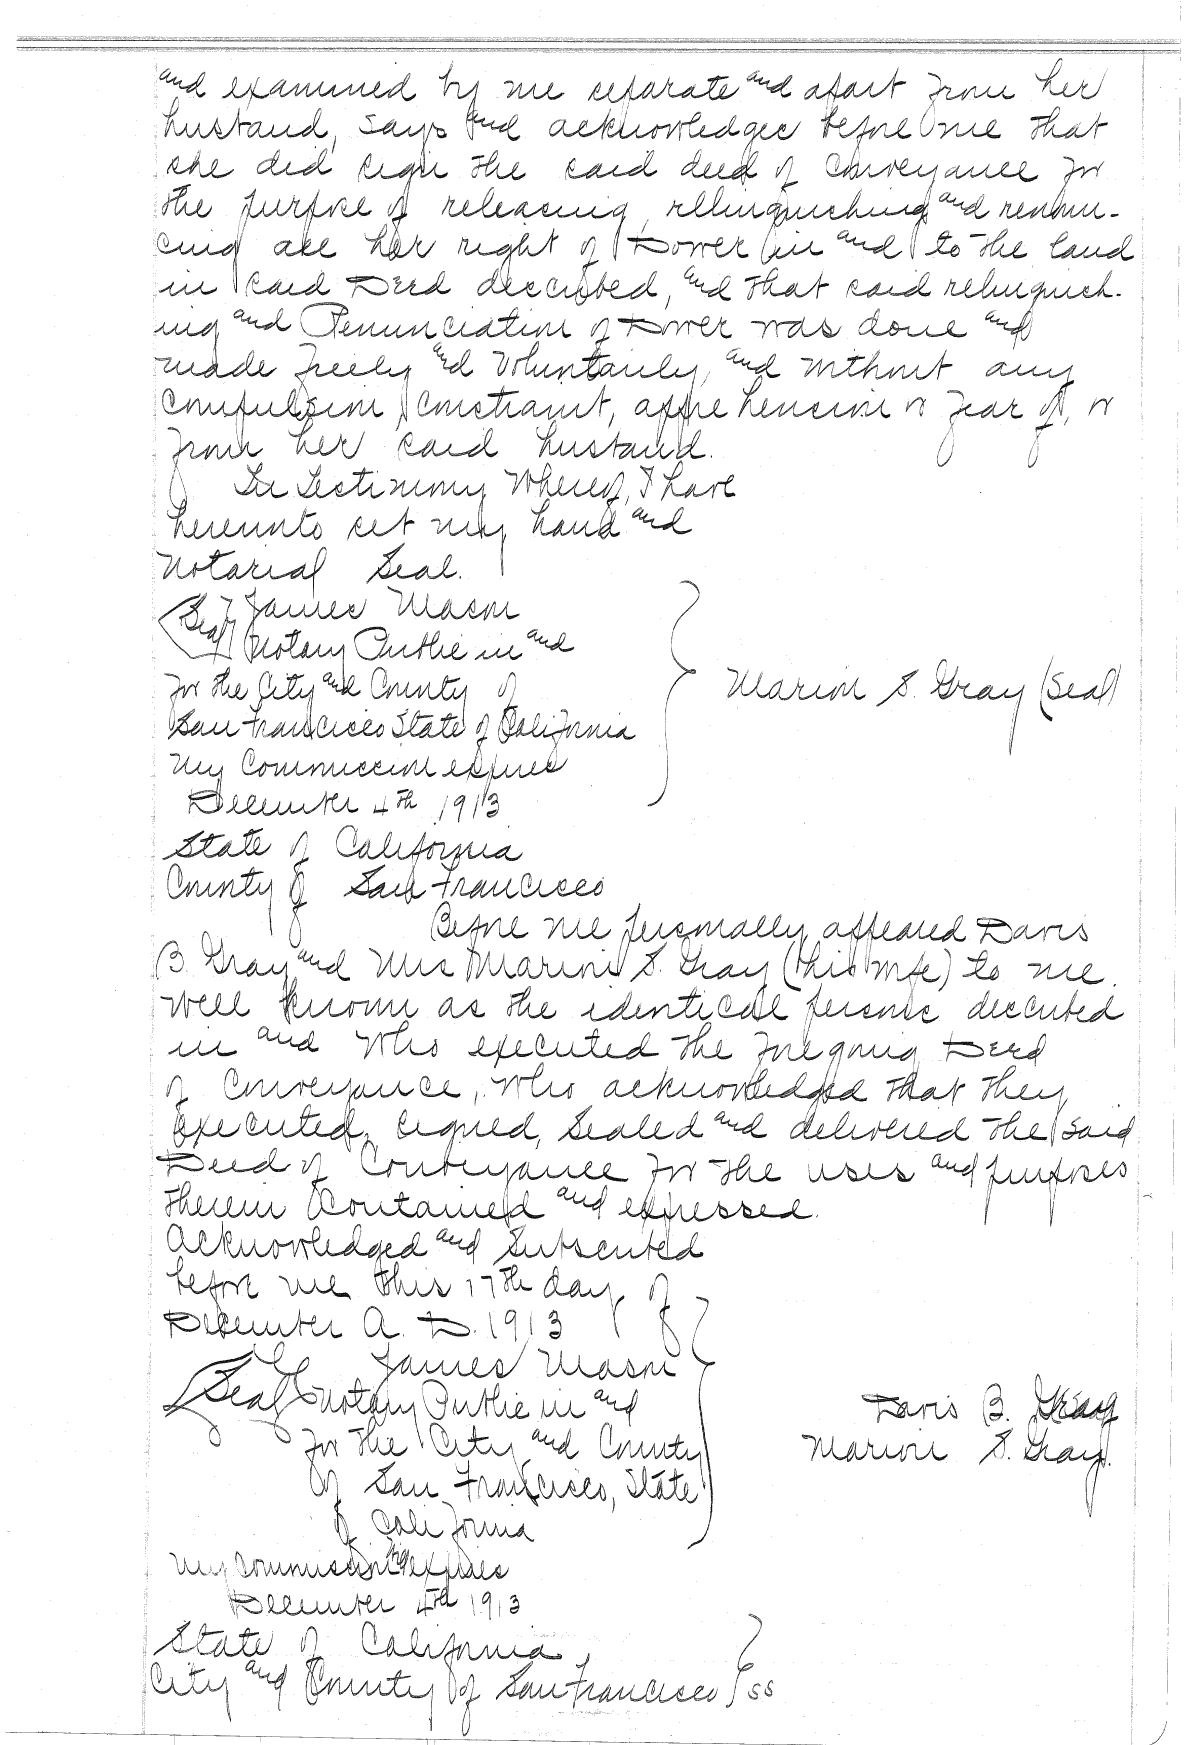 and examined by me separate and apart from her
husband, says and acknowledges before me that
she did sign the said deed of Conveyance for
the purpose of releasing, relinquishing and renoun-
cing all her right of Dower in and to the land
in said Deed described, and that said relinquish-
ing and Renunciation of Dower was done and
made freely and Voluntarily, and without any
Compulsion, Constraint, apprehension or fear of, or
from her said husband.
In Testimony Whereof, I have
hereunto set my hand and
Notarial Seal.
(Seal) James Mason
Notary Public in and
for the City and County of
San Francisco State of California
My Commission expires
December 4th 1913
Marion S. Gray (Seal)
State of California
County of San Francisco
Before me personally appeared Davis
B. Gray and Mrs Marion S. Gray (his wife) to me
well known as the identical persons described
in and Who executed the foregoing Deed
of Conveyance, Who acknowledged that they
executed, signed, Sealed and delivered the said
Deed of Conveyance for the uses and purposes
therein Contained and expressed.
Acknowledged and Subscribed
before me this 17th day of
December A. D. 1913
James Mason
(Seal) Notary Public in and
for the City and County
of San Francisco, State
of California
Davis B. Gray
Marion S. Gray.
My Commission expires
December 4th 1913
State of California,
City and County of San Francisco } ss